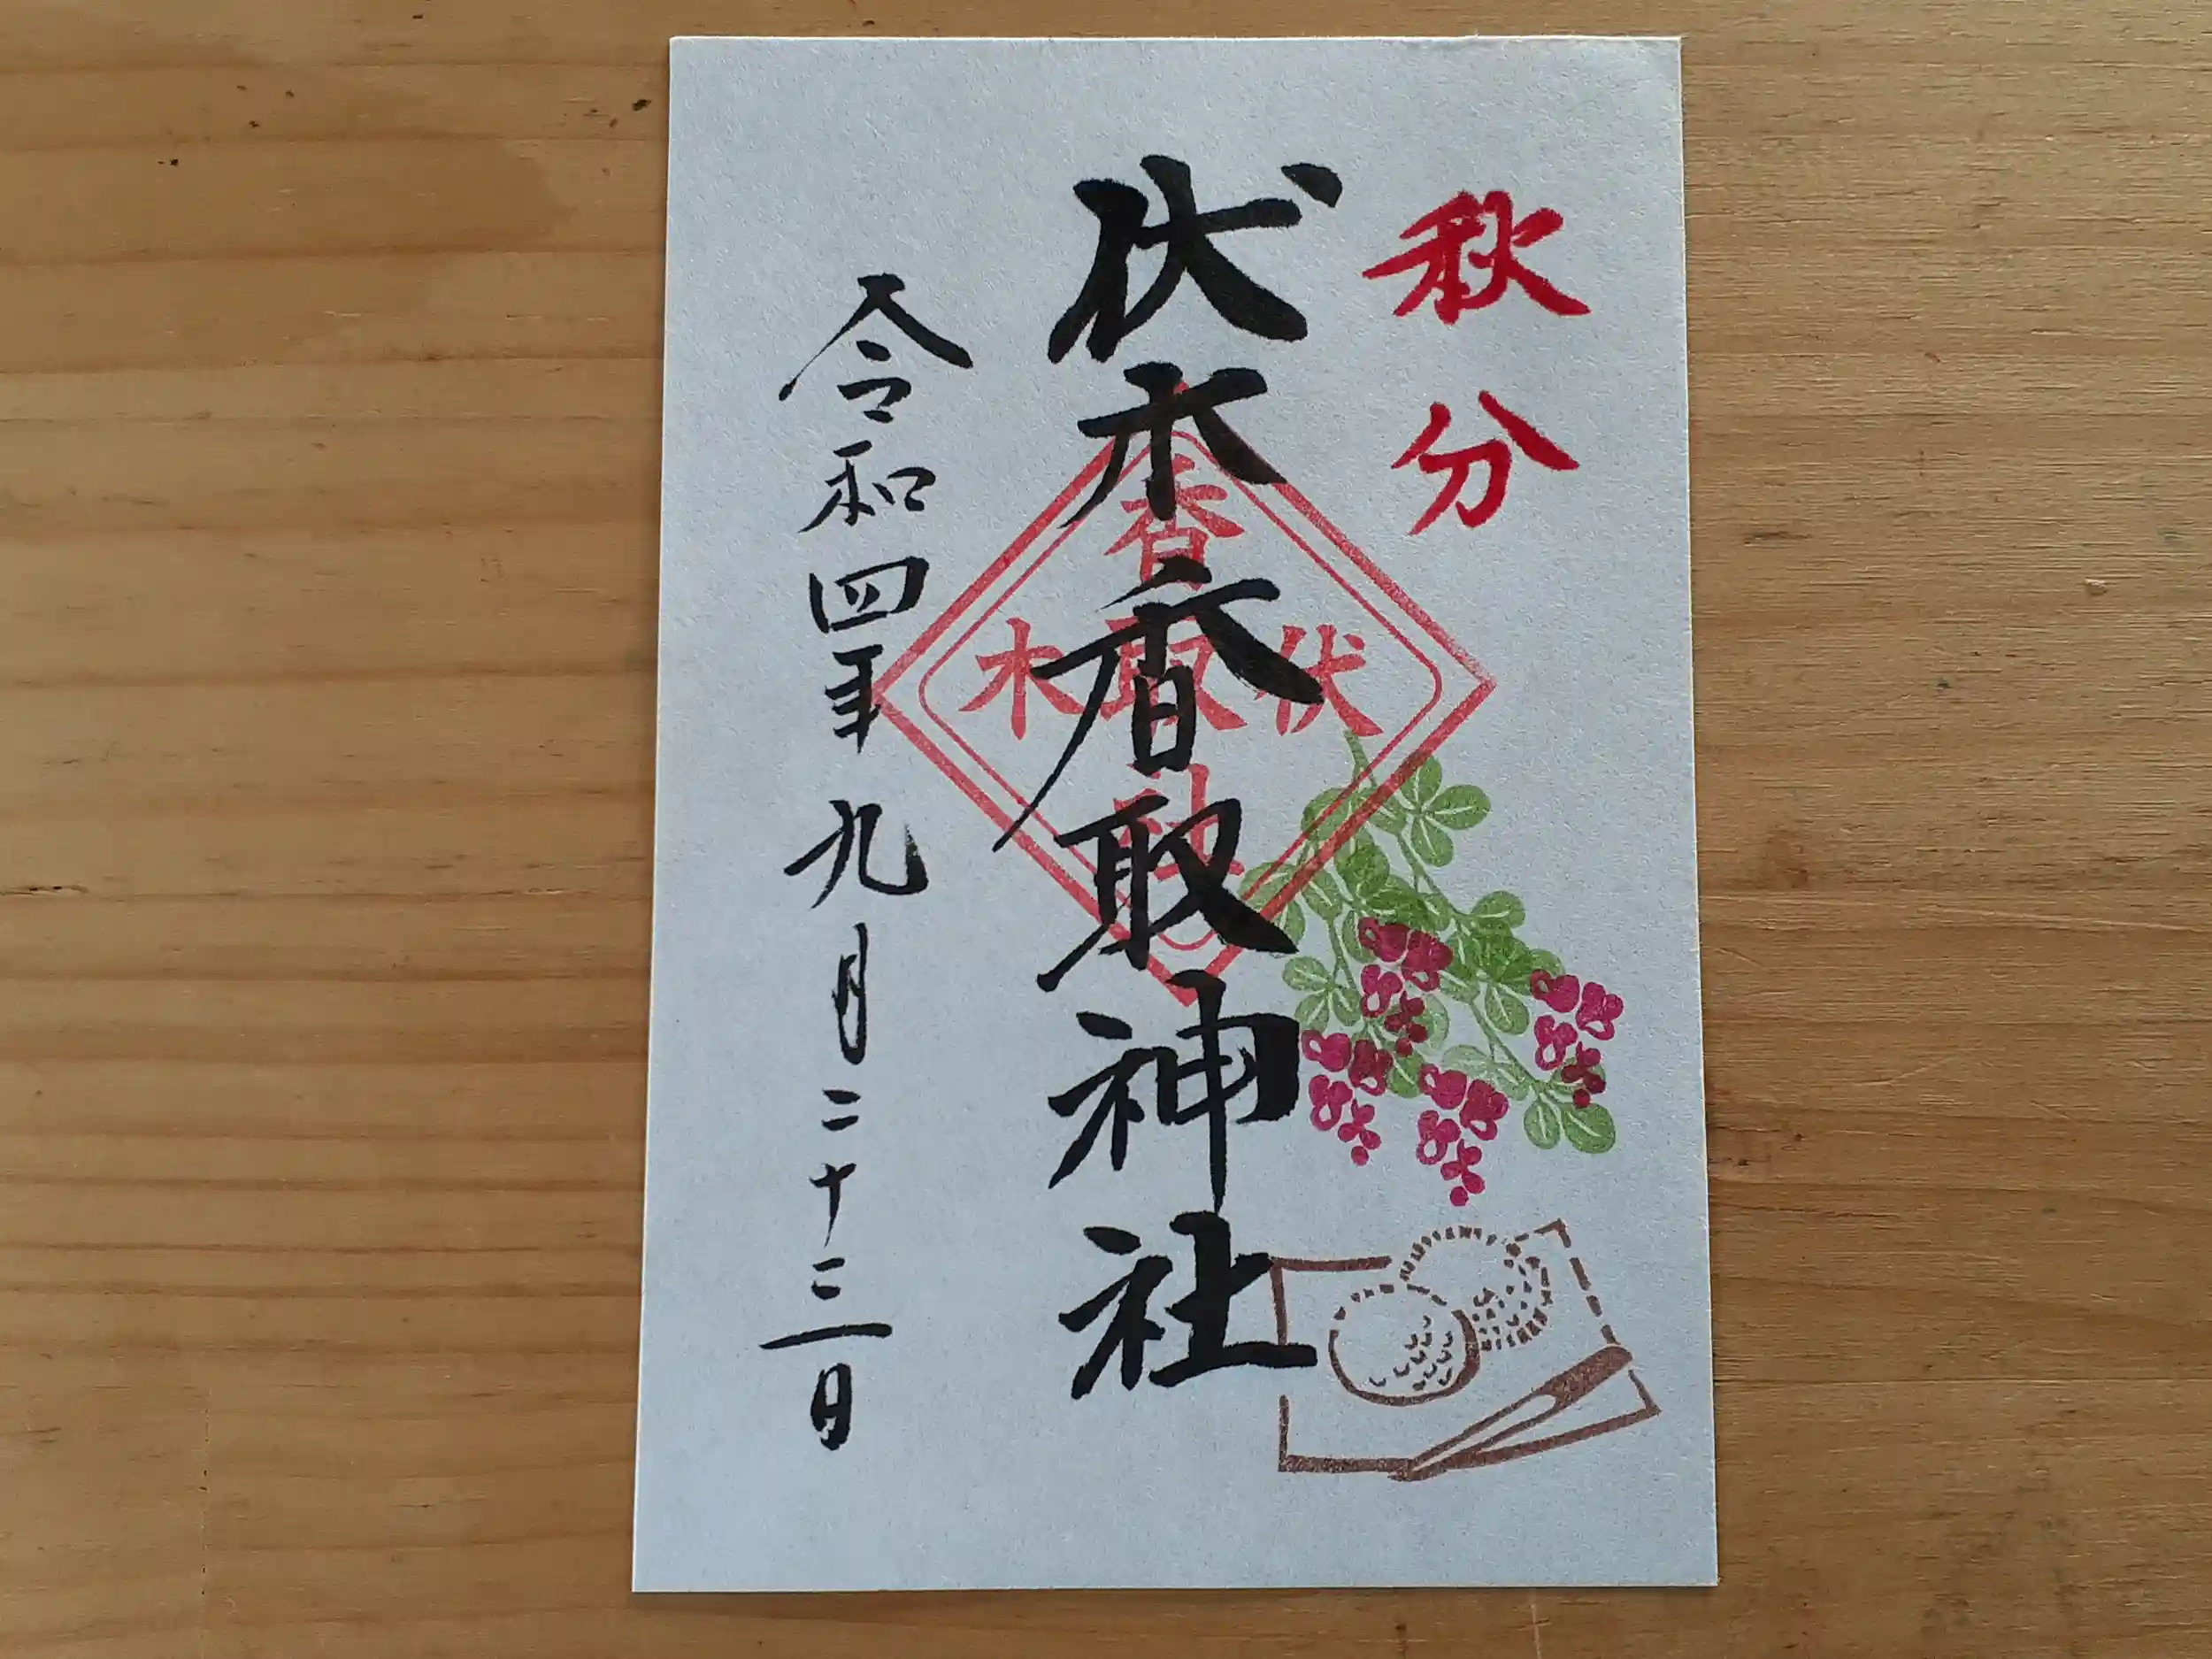 秋分
伏木香取神社
令和四年九月二十三日
香
伏取木
社